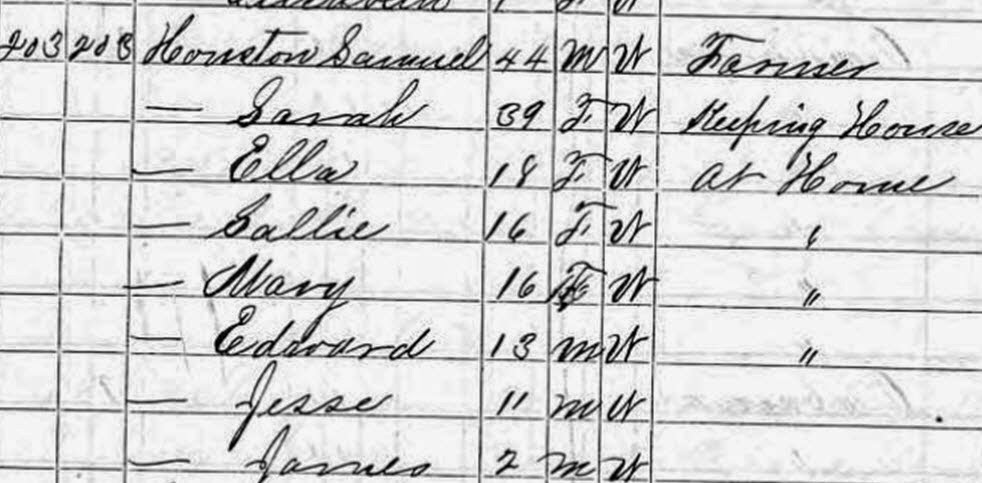 203 203 Houston Samuel 44 M W Farmer
— Sarah 39 F W Keeping House
— Ella 18 F W At Home
— Sallie 16 F W "
— Mary 16 F W "
— Edward 13 M W "
— Jesse 11 M W
— James 2 M W